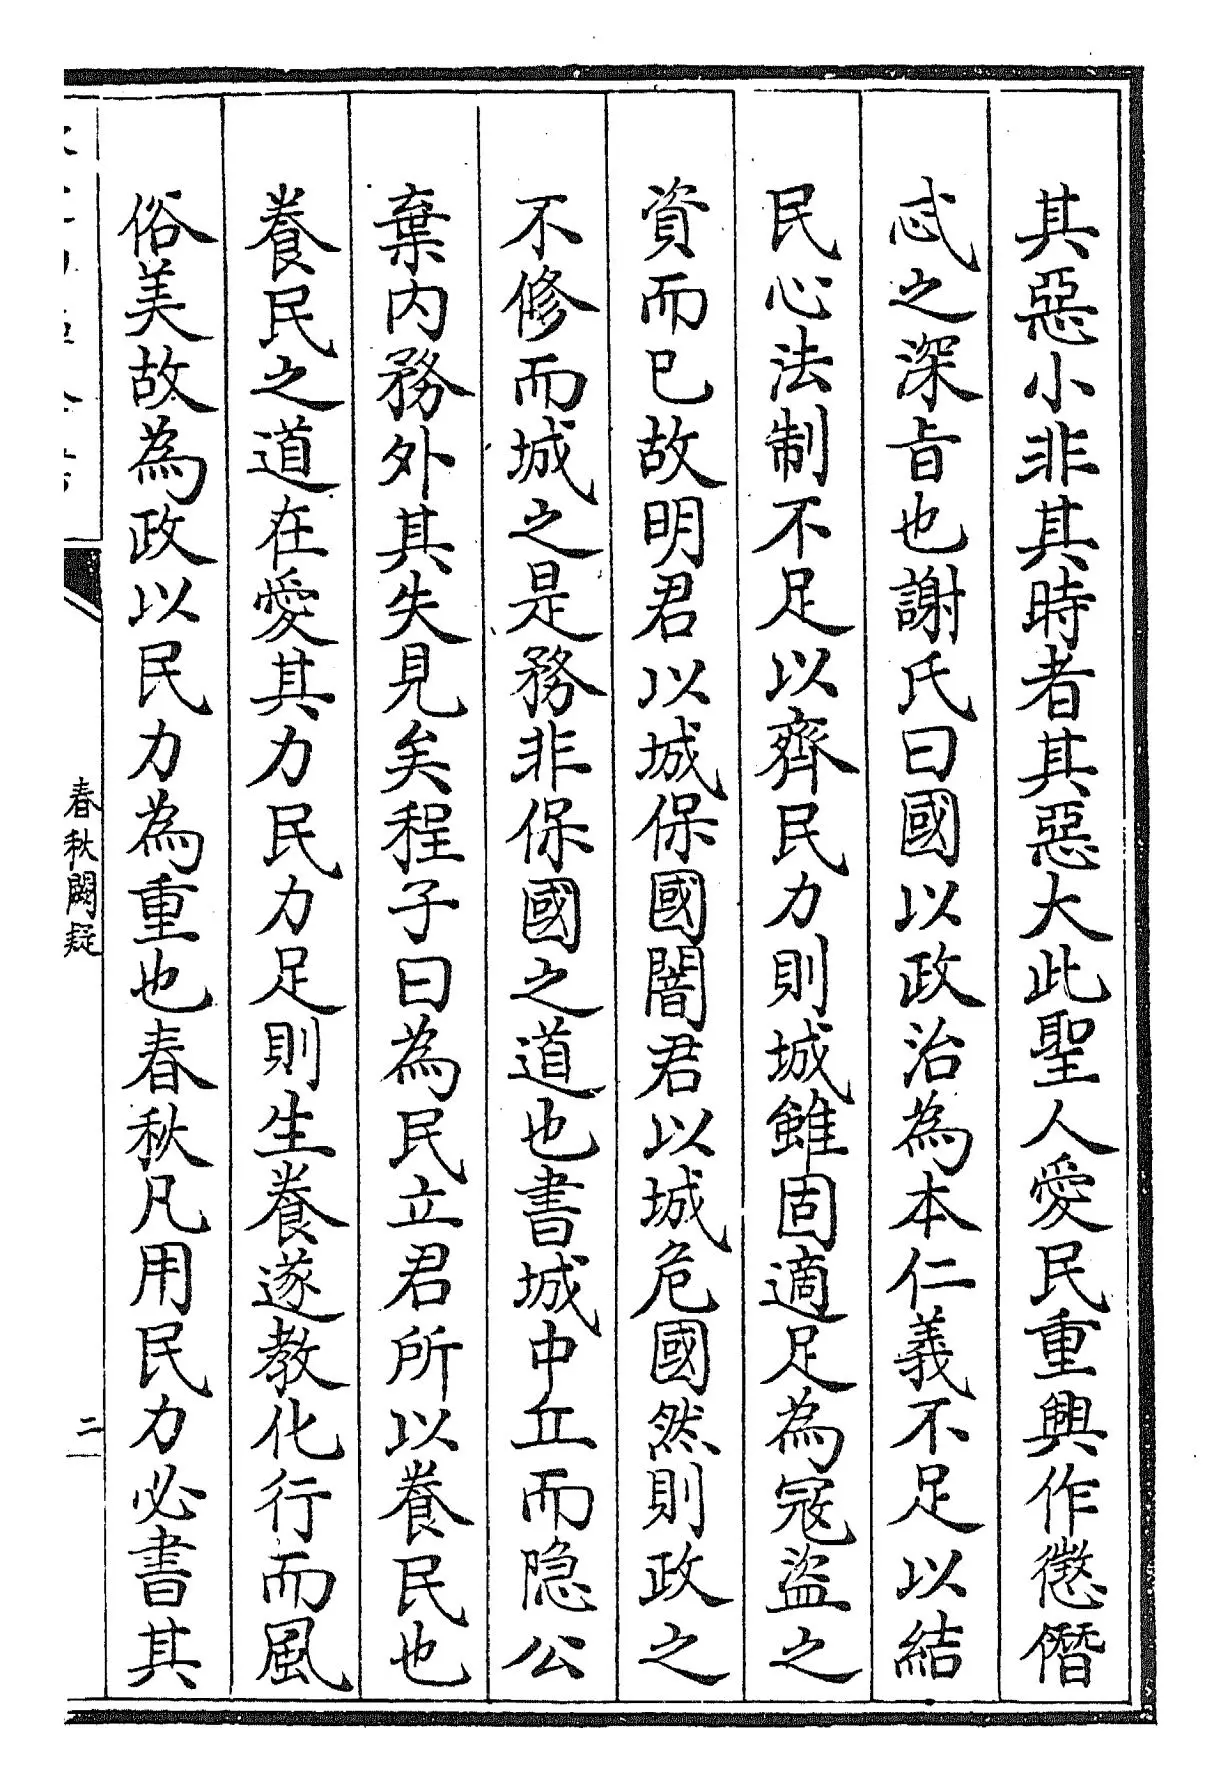 其惡小非其時者其惡大此聖人愛民重興作懲僭
忒之深旨也謝氏曰國以政治為本仁義不足以結
民心法制不足以齊民力則城雖固適足為冦盗之
資而已故明君以城保國闇君以城危國然則政之
不修而城之是務非保國之道也書城中丘而隐公
棄内務外其失見矣程子曰為民立君所以養民也
養民之道在愛其力民力足則生養遂教化行而風
俗美故為政以民力為重也春秋凡用民力必書其
春秋闕疑
二